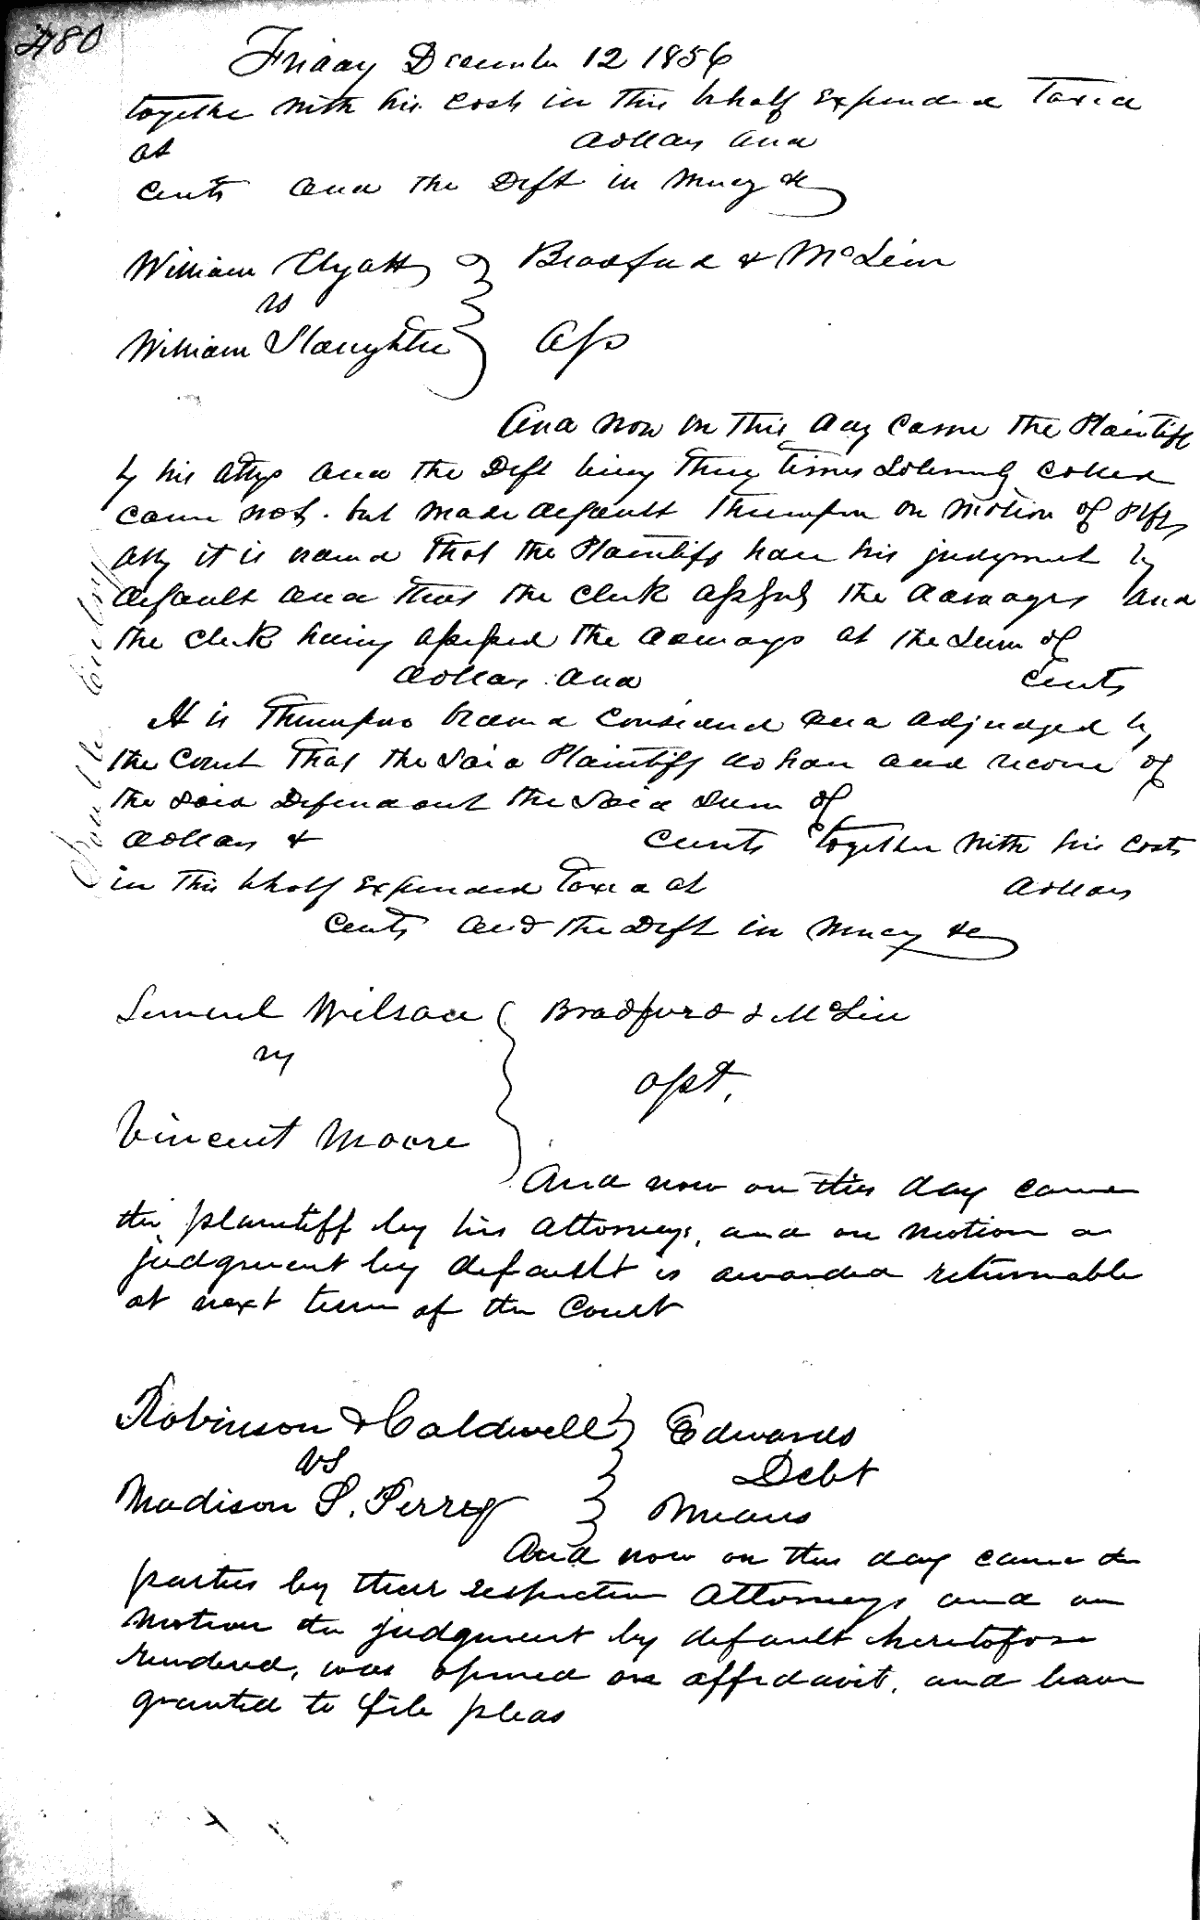 480
Friday December 12 1856
together with his costs in this behalf Expended Taxed
at dollars and
cents and the Deft in Mercy &c
William Wyatt Bradford & McLein
vs
William Slaughter Ass
And now on this day came the Plaintiff
by his attys and the Deft being three times Solemnly called
came not. but made default Thereupon on Motion of Plffs
atty it is the Plaintiff have his judgment by
default and that the clerk assess the damages and
the clerk having assessed the damages at the Sum of
dollars and cents
It is Thereupon considered and adjudged by
the Court That the Said Plaintiff do have and recover of
the said Defendant the Said Sum of
dollars & cents together with his costs
in this behalf Expended Taxed at dollars
cents and the Deft in Mercy &c
Double Entry
Lemuel Wilson Bradford & McLin
vs
Vincent Moore asst.
And now on this day came
the plaintiff by his attorneys, and on motion a
judgment by default is awarded returnable
at next term of the Court
Robinson & Caldwell Edwards
vs Debt
Madison S. Perry Means
And now on this day came the
parties by their respective attorneys and on
motion the judgment by default heretofore
rendered, was opened on affidavit, and leave
granted to file pleas